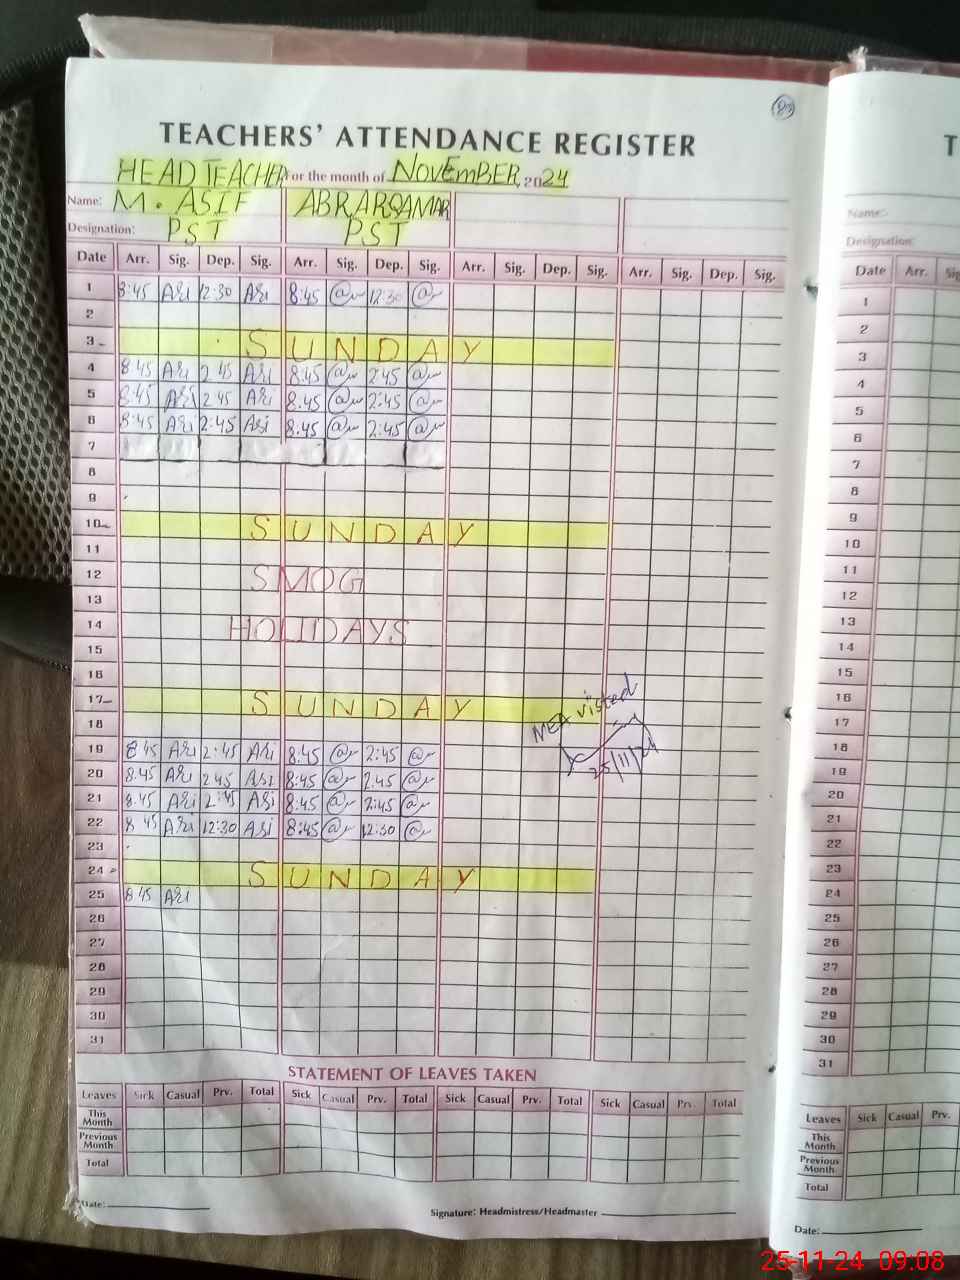 83
TEACHERS' ATTENDANCE REGISTER
HEAD TEACHER For the month of NOVEMBER, 2024
Name: M. ASIF ABRAR QAMAR
Designation: PST PST
Date Arr. Sig. Dep. Sig. Arr. Sig. Dep. Sig. Arr. Sig. Dep. Sig. Arr. Sig. Dep. Sig.
1 8:45 Asi 12:30 Asi 8:45 12:30
2
3 SUNDAY
4 8:45 Asi 2:45 Asi 8:45 2:45
5 8:45 Asi 2:45 Asi 8:45 2:45
6 8:45 Asi 2:45 Asi 8:45 2:45
7
8
9
10 SUNDAY
11
12 SMOG
13
14 HOLIDAYS
15
16
17 SUNDAY
18
19 8:45 Asi 2:45 Asi 8:45 2:45
20 8:45 Asi 2:45 Asi 8:45 2:45
21 8:45 Asi 2:45 Asi 8:45 2:45
22 8:45 Asi 12:30 Asi 8:45 12:30
23
24 SUNDAY
25 8:45 Asi
26
27
28
29
30
31
MEA visted
25/11/24
STATEMENT OF LEAVES TAKEN
Leaves Sick Casual Prv. Total Sick Casual Prv. Total Sick Casual Prv. Total Sick Casual Prv. Total
This Month
Previous Month
Total
Date:
Signature: Headmistress/Headmaster
T
Name:
Designation:
Date Arr. Sig
1
2
3
4
5
6
7
8
9
10
11
12
13
14
15
16
17
18
19
20
21
22
23
24
25
26
27
28
29
30
31
Leaves Sick Casual Prv.
This Month
Previous Month
Total
Date:
25-11-24 09:08